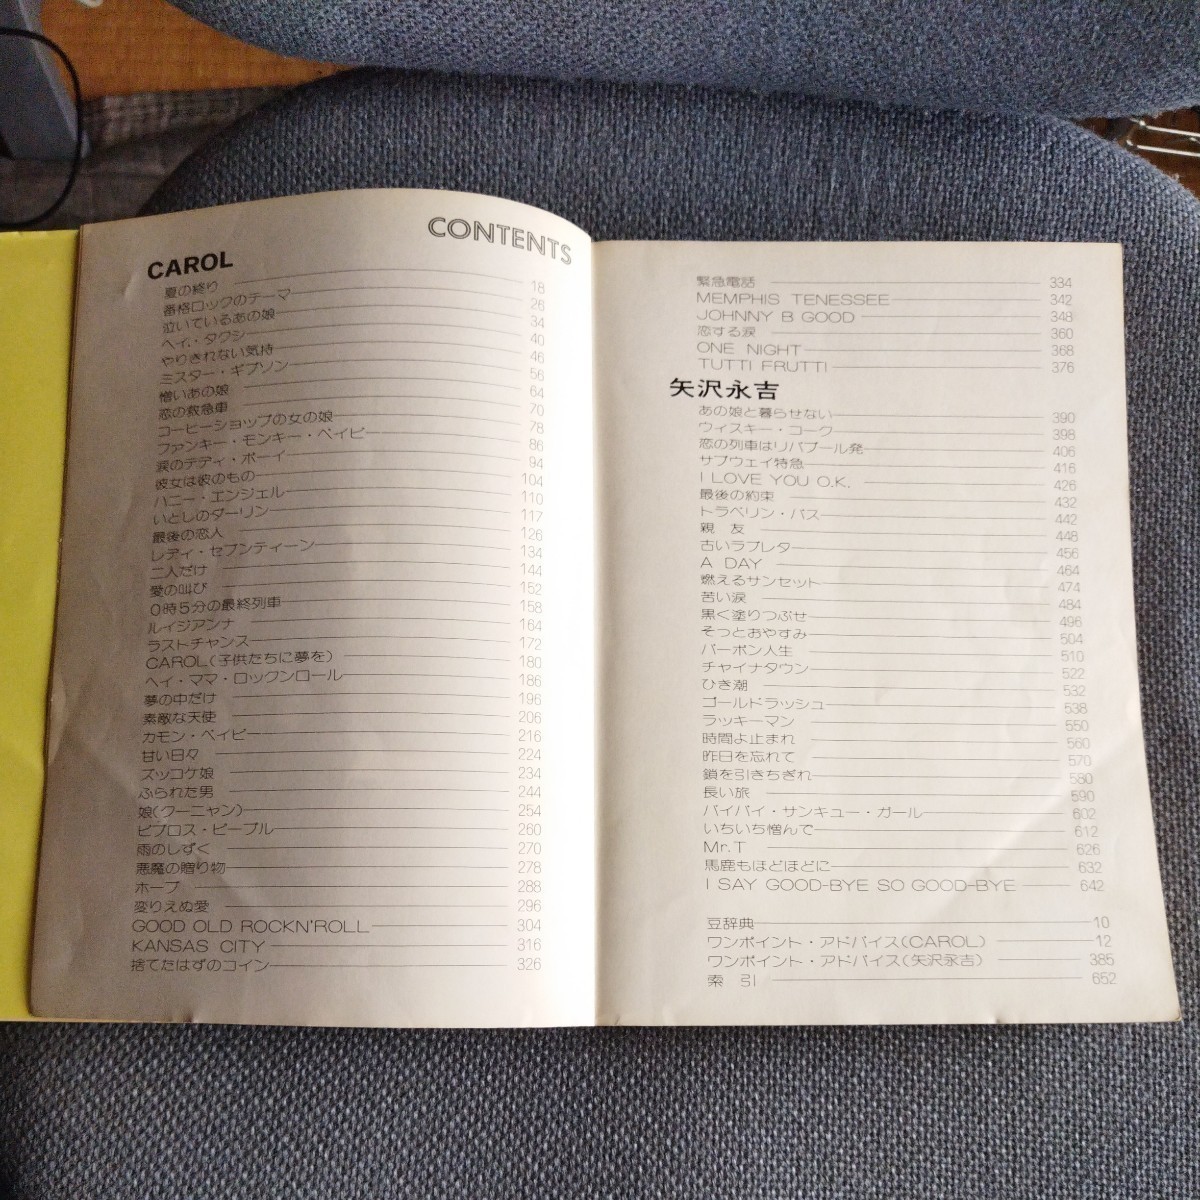 CONTENTS
CAROL
夏の終り 18
番格ロックのテーマ 26
泣いているあの娘 34
ヘイ・タクシー 40
やりきれない気持 46
ミスター・ギブソン 56
憎いあの娘 64
恋の救急車 70
コーヒーショップの女の娘 78
ファンキー・モンキー・ベイビー 86
涙のテディ・ボーイ 94
彼女は彼のもの 104
ハニー・エンジェル 110
いとしのダーリン 117
最後の恋人 126
レディ・セブンティーン 134
二人だけ 144
愛の叫び 152
0時5分の最終列車 158
ルイジアンナ 164
ラストチャンス 172
CAROL(子供たちに夢を) 180
ヘイ・ママ・ロックンロール 186
夢の中だけ 196
素敵な天使 206
カモン・ベイビー 216
甘い日々 224
ズッコケ娘 234
ふられた男 244
娘(クーニャン) 254
ビブロス・ピープル 260
雨のしずく 270
悪魔の贈り物 278
ホープ 288
変りえぬ愛 296
GOOD OLD ROCKN'ROLL 304
KANSAS CITY 316
捨てたはずのコイン 326
緊急電話 334
MEMPHIS TENESSEE 342
JOHNNY B GOOD 348
恋する涙 360
ONE NIGHT 368
TUTTI FRUTTI 376
矢沢永吉
あの娘と暮らせない 390
ウィスキー・コーク 398
恋の列車はリバプール発 406
サブウェイ特急 416
I LOVE YOU O.K. 426
最後の約束 432
トラベリン・バス 442
親 友 448
古いラブレター 456
A DAY 464
燃えるサンセット 474
苦い涙 484
黒く塗りつぶせ 496
そっとおやすみ 504
バーボン人生 510
チャイナタウン 522
ひき潮 532
ゴールドラッシュ 538
ラッキーマン 550
時間よ止まれ 560
昨日を忘れて 570
鎖を引きちぎれ 580
長い旅 590
バイバイ・サンキュー・ガール 602
いちいち憎んで 612
Mr.T 626
馬鹿もほどほどに 632
I SAY GOOD-BYE SO GOOD-BYE 642
豆辞典 10
ワンポイント・アドバイス(CAROL) 12
ワンポイント・アドバイス(矢沢永吉) 385
索 引 652